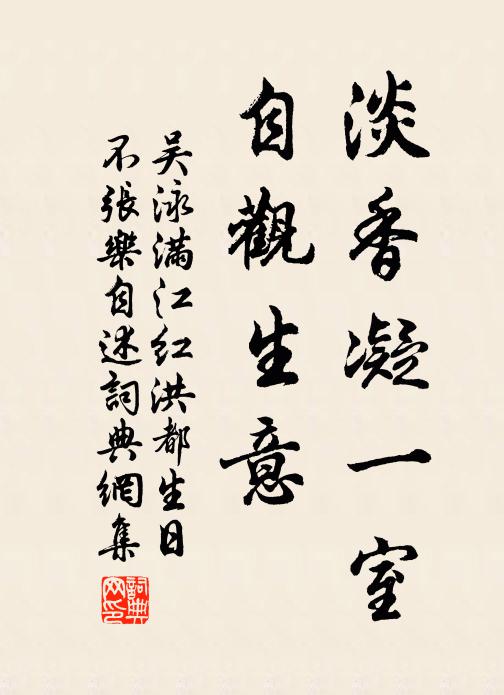 淡香凝一室
自觀生意
吳泳滿江紅洪都生日
不張樂自述詞典網集
詞典網印